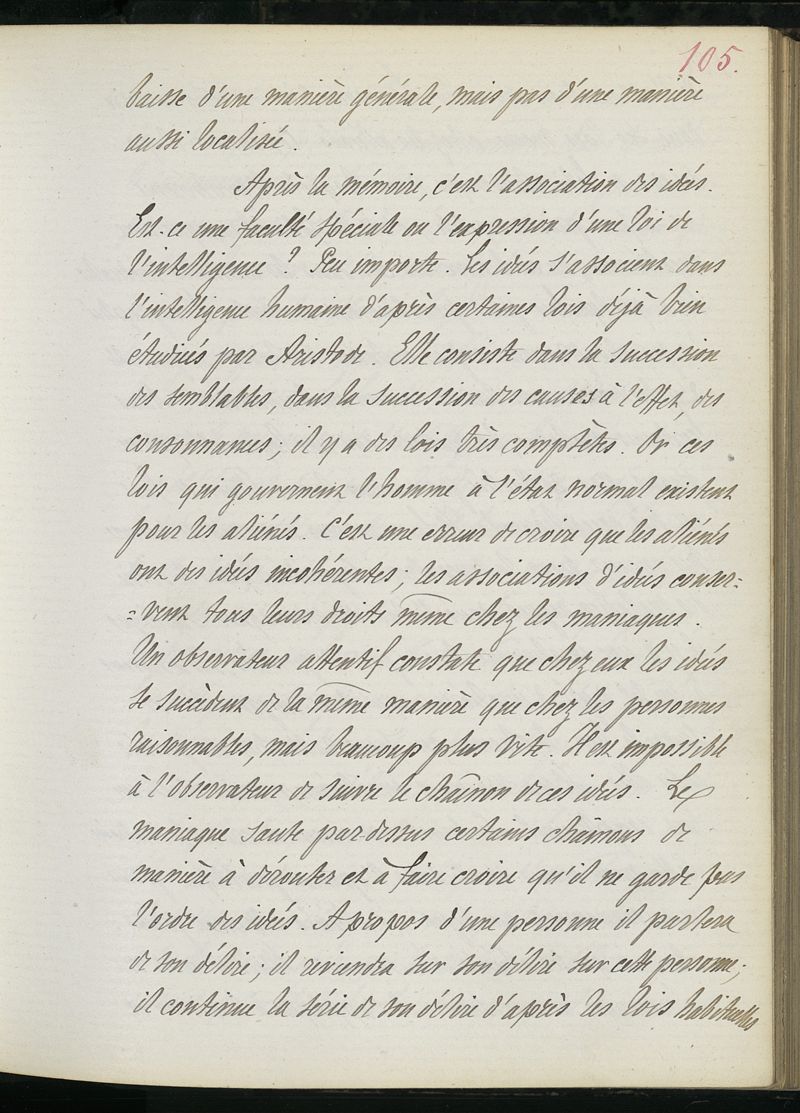 105.
baisse d'une manière générale, mais pas d'une manière
aussi localisée.
Après la mémoire, c'est l'association des idées.
Est-ce une faculté spéciale ou l'expression d'une loi de
l'intelligence ? Peu importe. Les idées s'associent dans
l'intelligence humaine d'après certaines lois déjà bien
étudiées par Aristode. Elle consiste dans la succession
des semblables, dans la succession des causes à l'effet, des
consonnances ; il y a des lois très complètes. Or ces
lois qui gouvernent l'homme à l'état normal existent
pour les aliénés. C'est une erreur de croire que les aliénés
ont des idées incohérentes ; les associations d'idées conser=
=vent tous leurs droits même chez les maniaques.
Un observateur attentif constate que chez eux les idées
se succèdent de la même manière que chez les personnes
raisonnables, mais beaucoup plus vite. Il est impossible
à l'observateur de suivre le chaînon de ces idées. Le
maniaque saute par-dessus certains chaînons de
manière à dérouter et à faire croire qu'il ne garde pas
l'ordre des idées. A propos d'une personne il parlera
de son délire ; il reviendra sur son délire sur cette personne ;
il continue la série de son délire d'après les lois habituelles